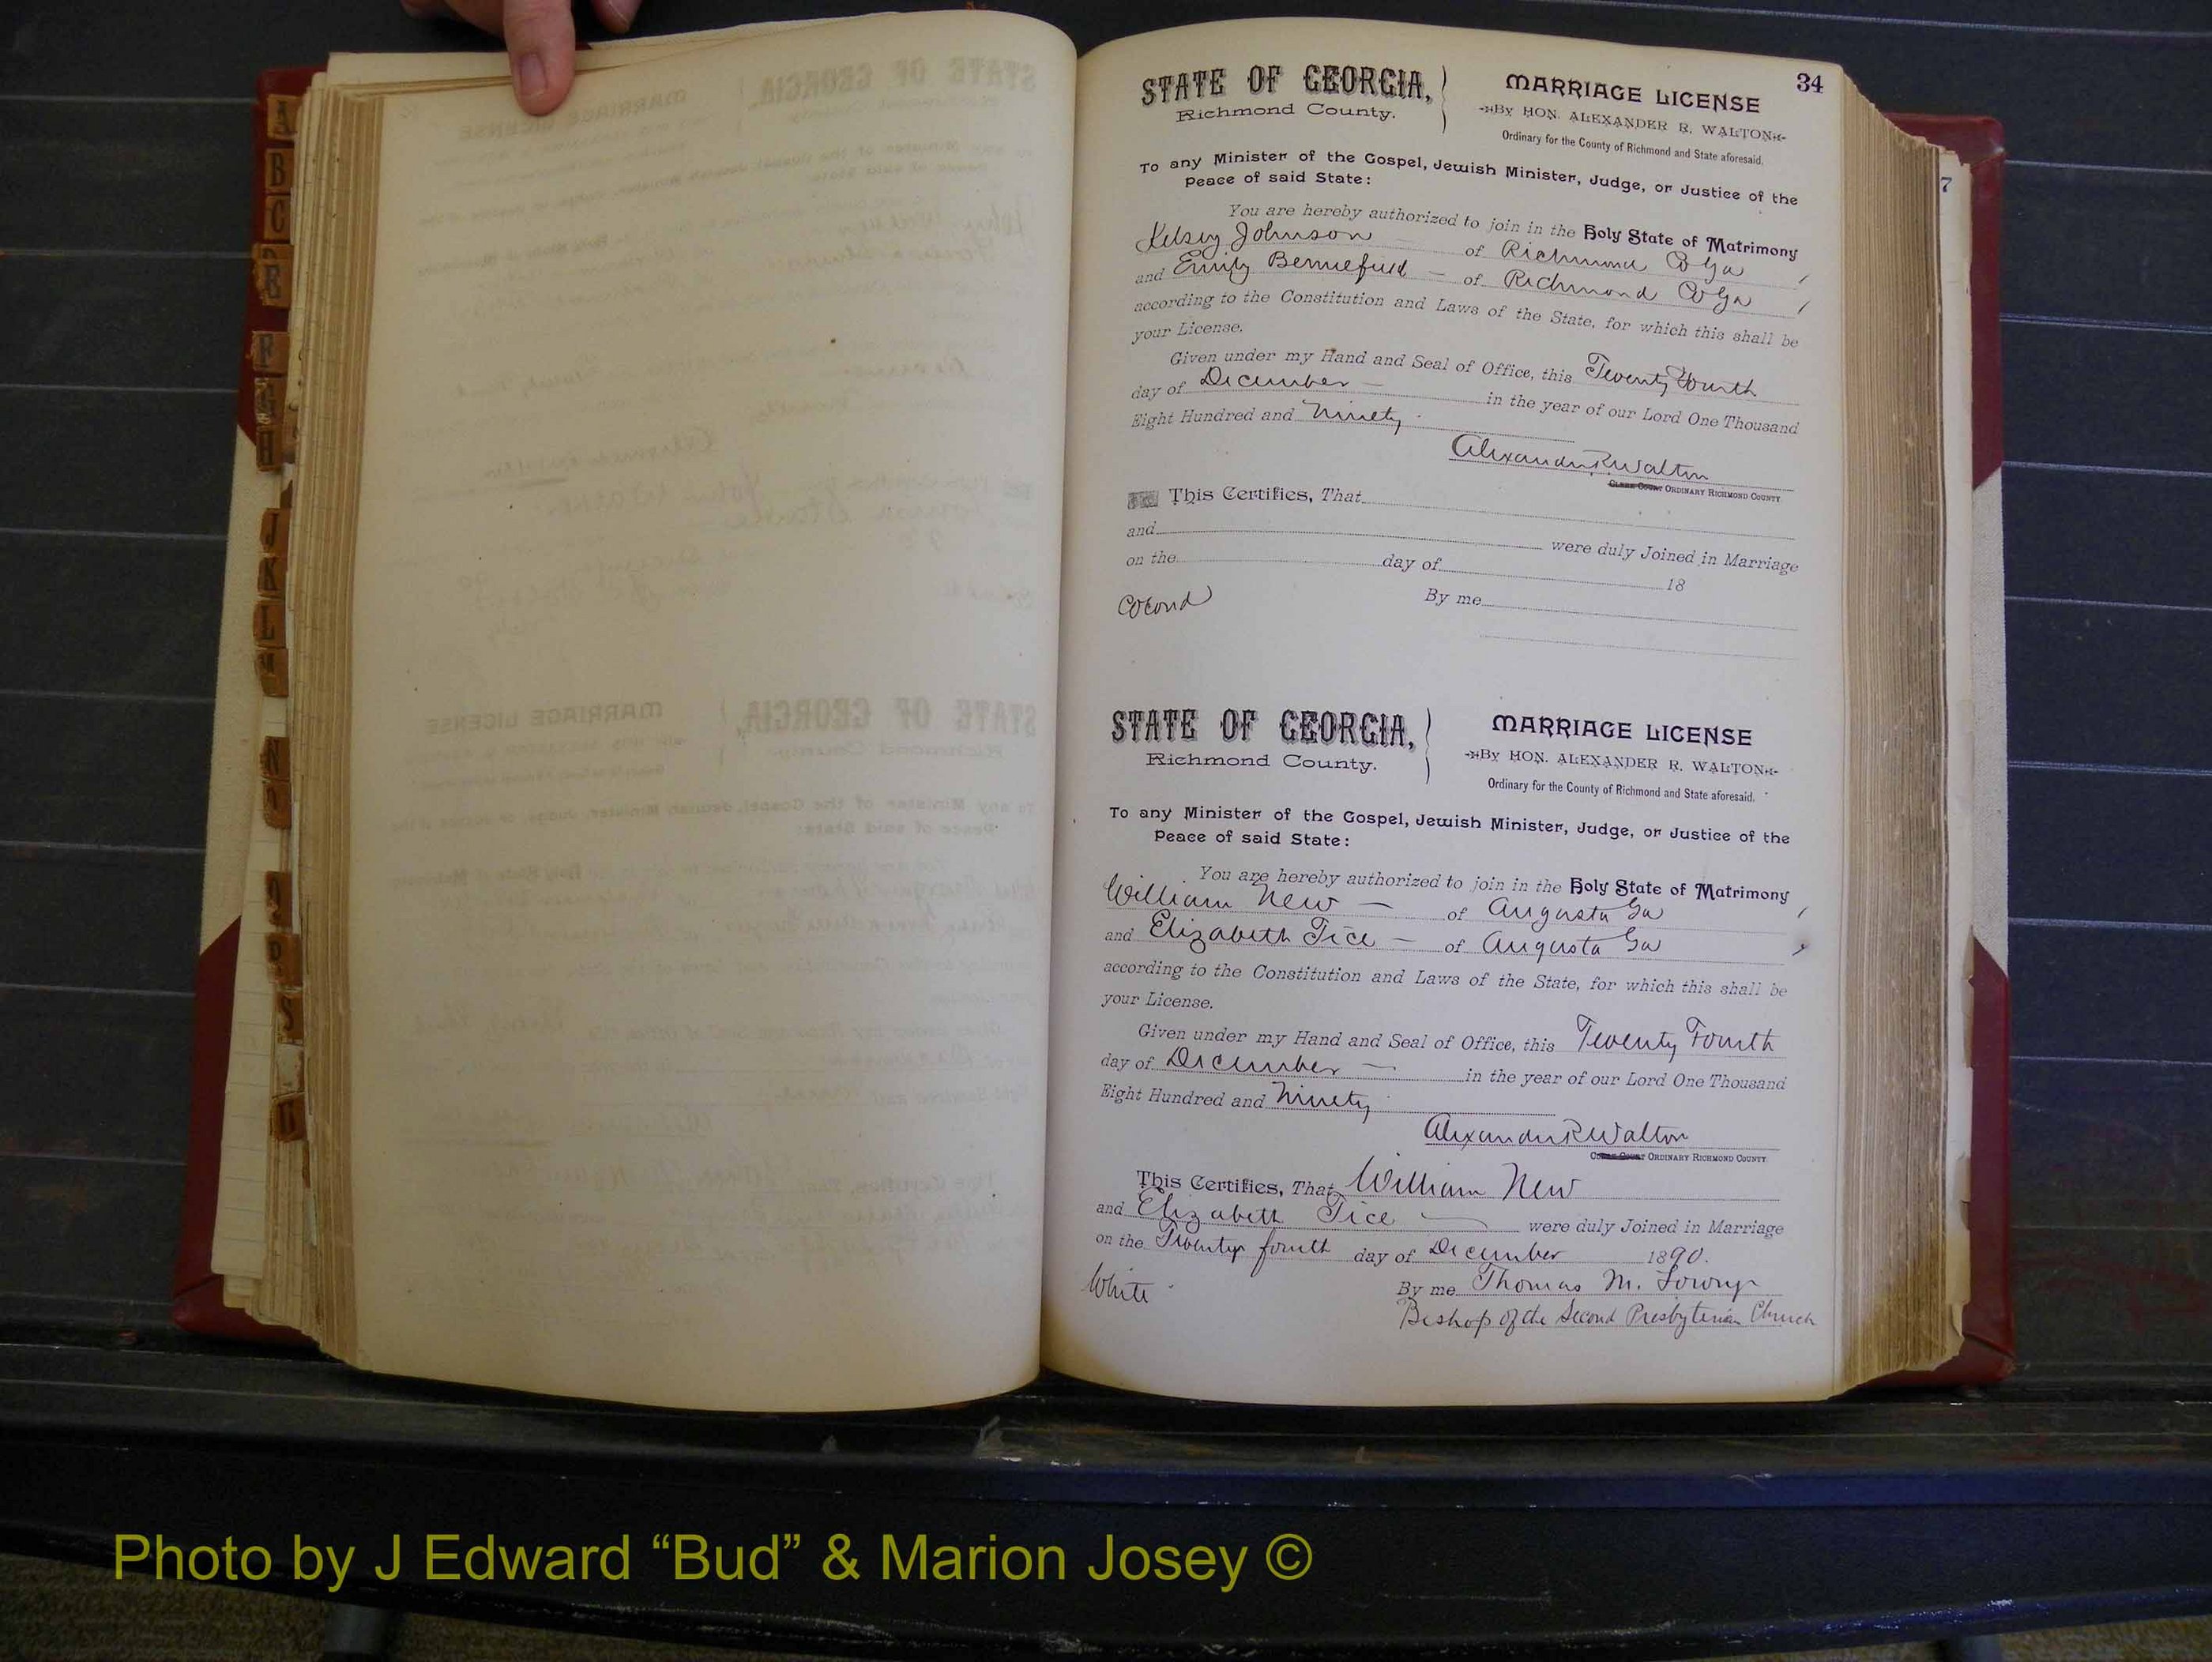 34
STATE OF GEORGIA,
Richmond County.
MARRIAGE LICENSE
By HON. ALEXANDER R. WALTON
Ordinary for the County of Richmond and State aforesaid.
To any Minister of the Gospel, Jewish Minister, Judge, or Justice of the
Peace of said State:
You are hereby authorized to join in the Holy State of Matrimony
Kelsey Johnson of Richmond Co Ga
and Emily of Richmond Co Ga
according to the Constitution and Laws of the State, for which this shall be
your License.
Given under my Hand and Seal of Office, this Twenty Fourth
day of December in the year of our Lord One Thousand
Eight Hundred and Ninety
Alexander R Walton
ORDINARY RICHMOND COUNTY
This Certifies, That
and were duly Joined in Marriage
on the day of 18
By me
STATE OF GEORGIA,
Richmond County.
MARRIAGE LICENSE
By HON. ALEXANDER R. WALTON
Ordinary for the County of Richmond and State aforesaid.
To any Minister of the Gospel, Jewish Minister, Judge, or Justice of the
Peace of said State:
You are hereby authorized to join in the Holy State of Matrimony
William New of Augusta Ga
and Elizabeth Tice of Augusta Ga
according to the Constitution and Laws of the State, for which this shall be
your License.
Given under my Hand and Seal of Office, this Twenty Fourth
day of December in the year of our Lord One Thousand
Eight Hundred and Ninety
Alexander R Walton
ORDINARY RICHMOND COUNTY
This Certifies, That William New
and Elizabeth Tice were duly Joined in Marriage
on the Twenty fourth day of December 1890.
White By me Thomas M. Lowry
Bishop of the Second Presbyterian Church
7
A
B
C
F
G
H
J
K
L
M
N
O
S
U
Photo by J Edward “Bud” & Marion Josey ©